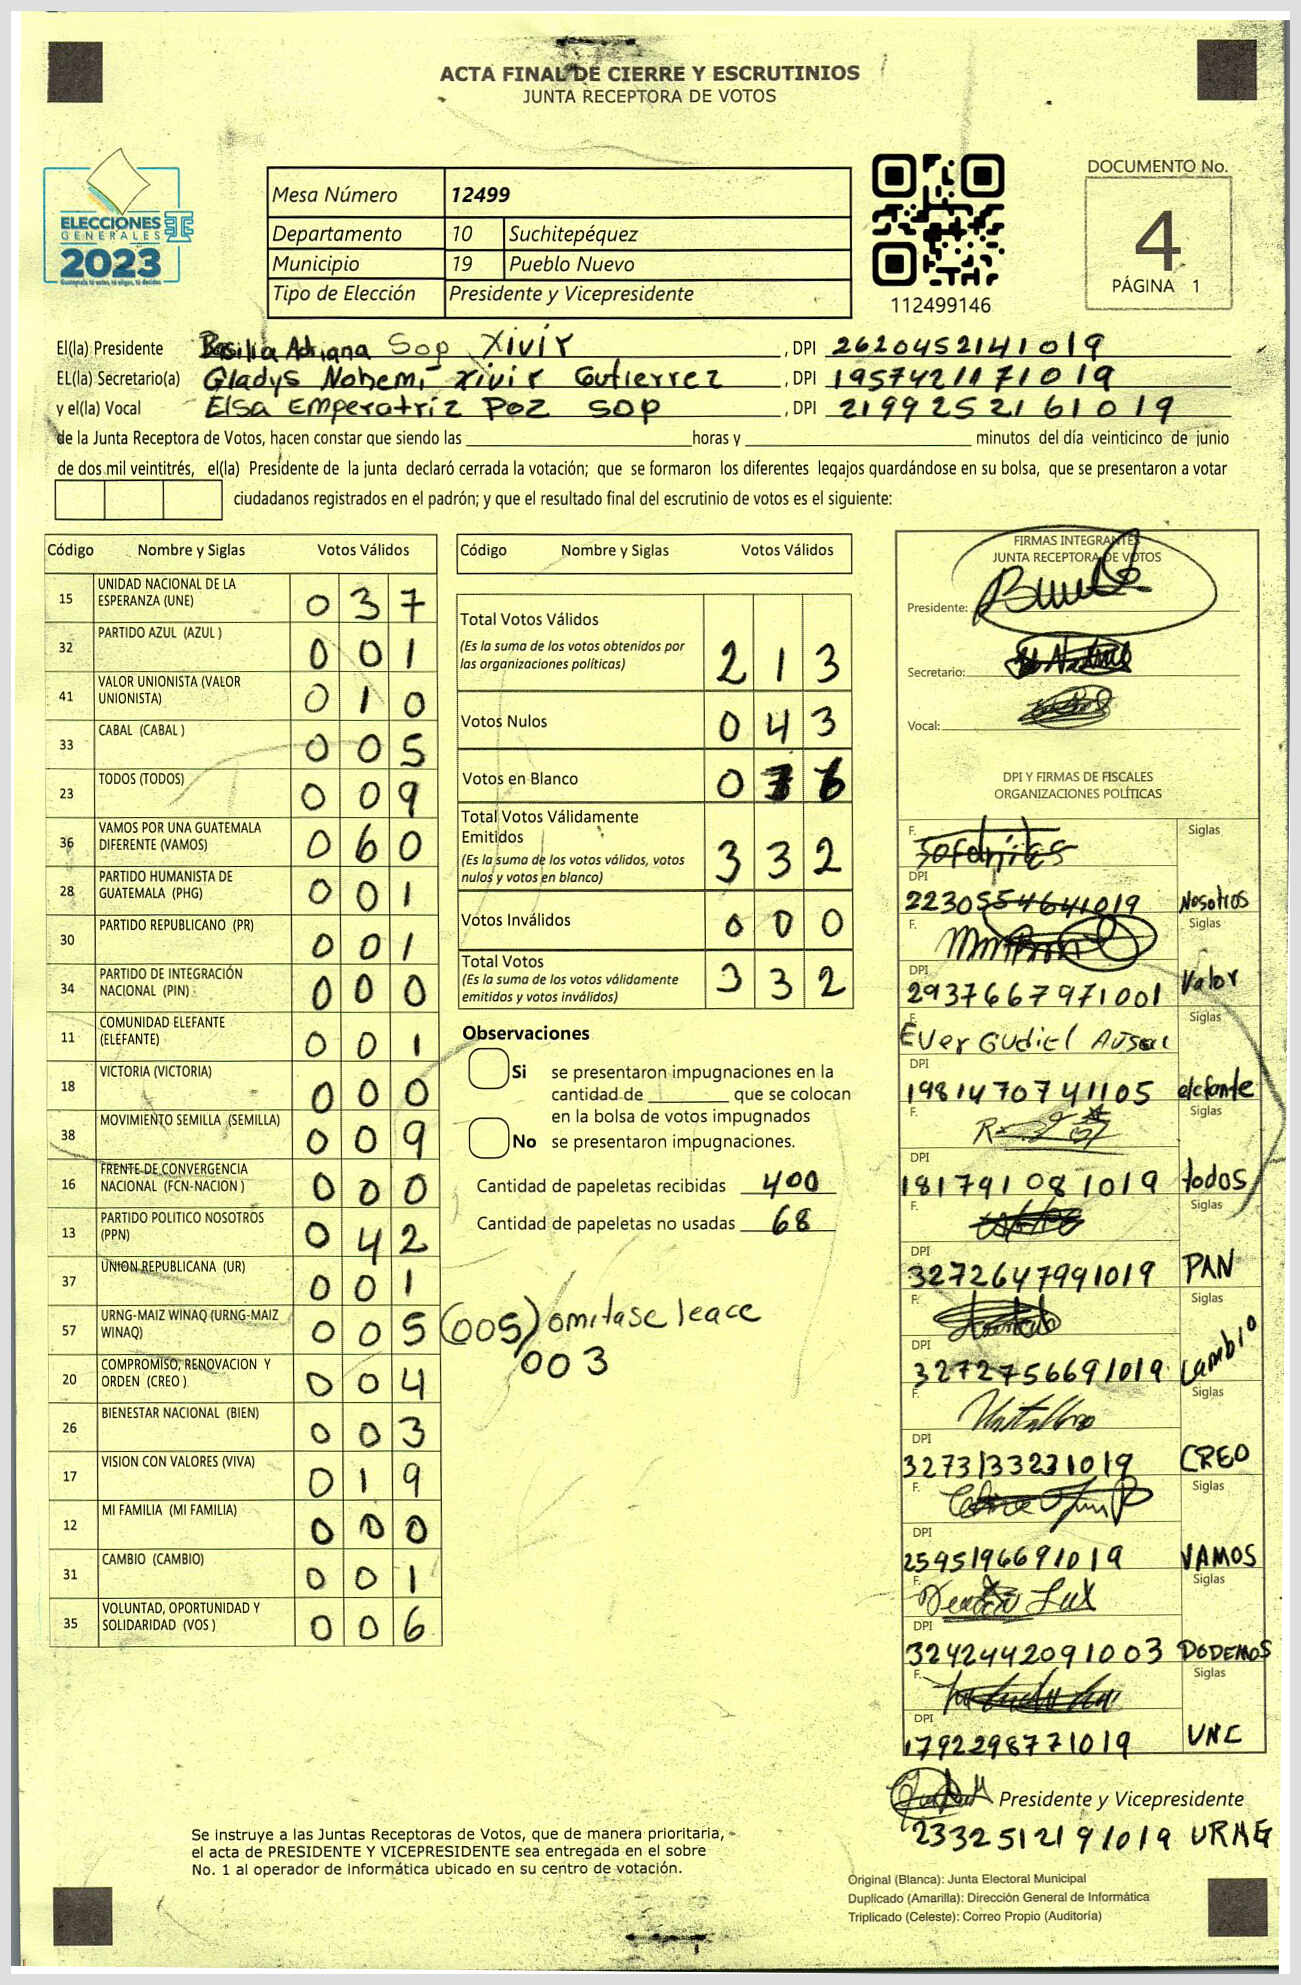 ACTA FINAL DE CIERRE Y ESCRUTINIOS
JUNTA RECEPTORA DE VOTOS
ELECCIONES
GENERALES
2023
Mesa Número 12499
Departamento 10 Suchitepéquez
Municipio 19 Pueblo Nuevo
Tipo de Elección Presidente y Vicepresidente
112499146
DOCUMENTO No.
4
PÁGINA 1
El(la) Presidente Basilia Adriana Sop Xivir , DPI 2620452141019
EL(la) Secretario(a) Gladys Nohemi Xivir Gutierrez , DPI 1957421171019
y el(la) Vocal Elsa Emperatriz Poz Sop , DPI 2199252161019
de la Junta Receptora de Votos, hacen constar que siendo las horas y minutos del día veinticinco de junio
de dos mil veintitrés, el(la) Presidente de la junta declaró cerrada la votación; que se formaron los diferentes legajos guardándose en su bolsa, que se presentaron a votar
ciudadanos registrados en el padrón; y que el resultado final del escrutinio de votos es el siguiente:
Código Nombre y Siglas Votos Válidos
15 UNIDAD NACIONAL DE LA ESPERANZA (UNE) 037
32 PARTIDO AZUL (AZUL ) 001
41 VALOR UNIONISTA (VALOR UNIONISTA) 010
33 CABAL (CABAL ) 005
23 TODOS (TODOS) 009
36 VAMOS POR UNA GUATEMALA DIFERENTE (VAMOS) 060
28 PARTIDO HUMANISTA DE GUATEMALA (PHG) 001
30 PARTIDO REPUBLICANO (PR) 001
34 PARTIDO DE INTEGRACIÓN NACIONAL (PIN) 000
11 COMUNIDAD ELEFANTE (ELEFANTE) 001
18 VICTORIA (VICTORIA) 000
38 MOVIMIENTO SEMILLA (SEMILLA) 009
16 FRENTE DE CONVERGENCIA NACIONAL (FCN-NACION ) 000
13 PARTIDO POLITICO NOSOTROS (PPN) 042
37 UNION REPUBLICANA (UR) 001
57 URNG-MAIZ WINAQ (URNG-MAIZ WINAQ) 005 (005) omitase leace
003
20 COMPROMISO, RENOVACION Y ORDEN (CREO ) 004
26 BIENESTAR NACIONAL (BIEN) 003
17 VISION CON VALORES (VIVA) 019
12 MI FAMILIA (MI FAMILIA) 000
31 CAMBIO (CAMBIO) 001
35 VOLUNTAD, OPORTUNIDAD Y SOLIDARIDAD (VOS ) 006
Código Nombre y Siglas Votos Válidos
Total Votos Válidos 213
(Es la suma de los votos obtenidos por
las organizaciones políticas)
Votos Nulos 043
Votos en Blanco 076
Total Votos Válidamente
Emitidos 332
(Es la suma de los votos válidos, votos
nulos y votos en blanco)
Votos Inválidos 000
Total Votos 332
(Es la suma de los votos válidamente
emitidos y votos inválidos)
Observaciones
Si se presentaron impugnaciones en la
cantidad de que se colocan
en la bolsa de votos impugnados
No se presentaron impugnaciones.
Cantidad de papeletas recibidas 400
Cantidad de papeletas no usadas 68
FIRMAS INTEGRANTES
JUNTA RECEPTORA DE VOTOS
Presidente:
Secretario:
Vocal:
DPI Y FIRMAS DE FISCALES
ORGANIZACIONES POLÍTICAS
F. Siglas
DPI
2230554641019 Nosotros
F. Siglas
DPI
2937667971001 Valor
F. Siglas
Ever Gudiel
DPI
1981470741105 elefante
F. Siglas
DPI
181791081019 todos
F. Siglas
DPI
3272647991019 PAN
F. Siglas
DPI
3272756691019 cambio
F. Siglas
DPI
3273133231019 CREO
F. Siglas
DPI
2595196691019 VAMOS
F. Siglas
DPI
3242442091003 PODEMOS
F. Siglas
DPI
1792298771019 UNE
Presidente y Vicepresidente
2332512191019 URNG
Se instruye a las Juntas Receptoras de Votos, que de manera prioritaria,
el acta de PRESIDENTE Y VICEPRESIDENTE sea entregada en el sobre
No. 1 al operador de informática ubicado en su centro de votación.
Original (Blanca): Junta Electoral Municipal
Duplicado (Amarilla): Dirección General de Informática
Triplicado (Celeste): Correo Propio (Auditoría)